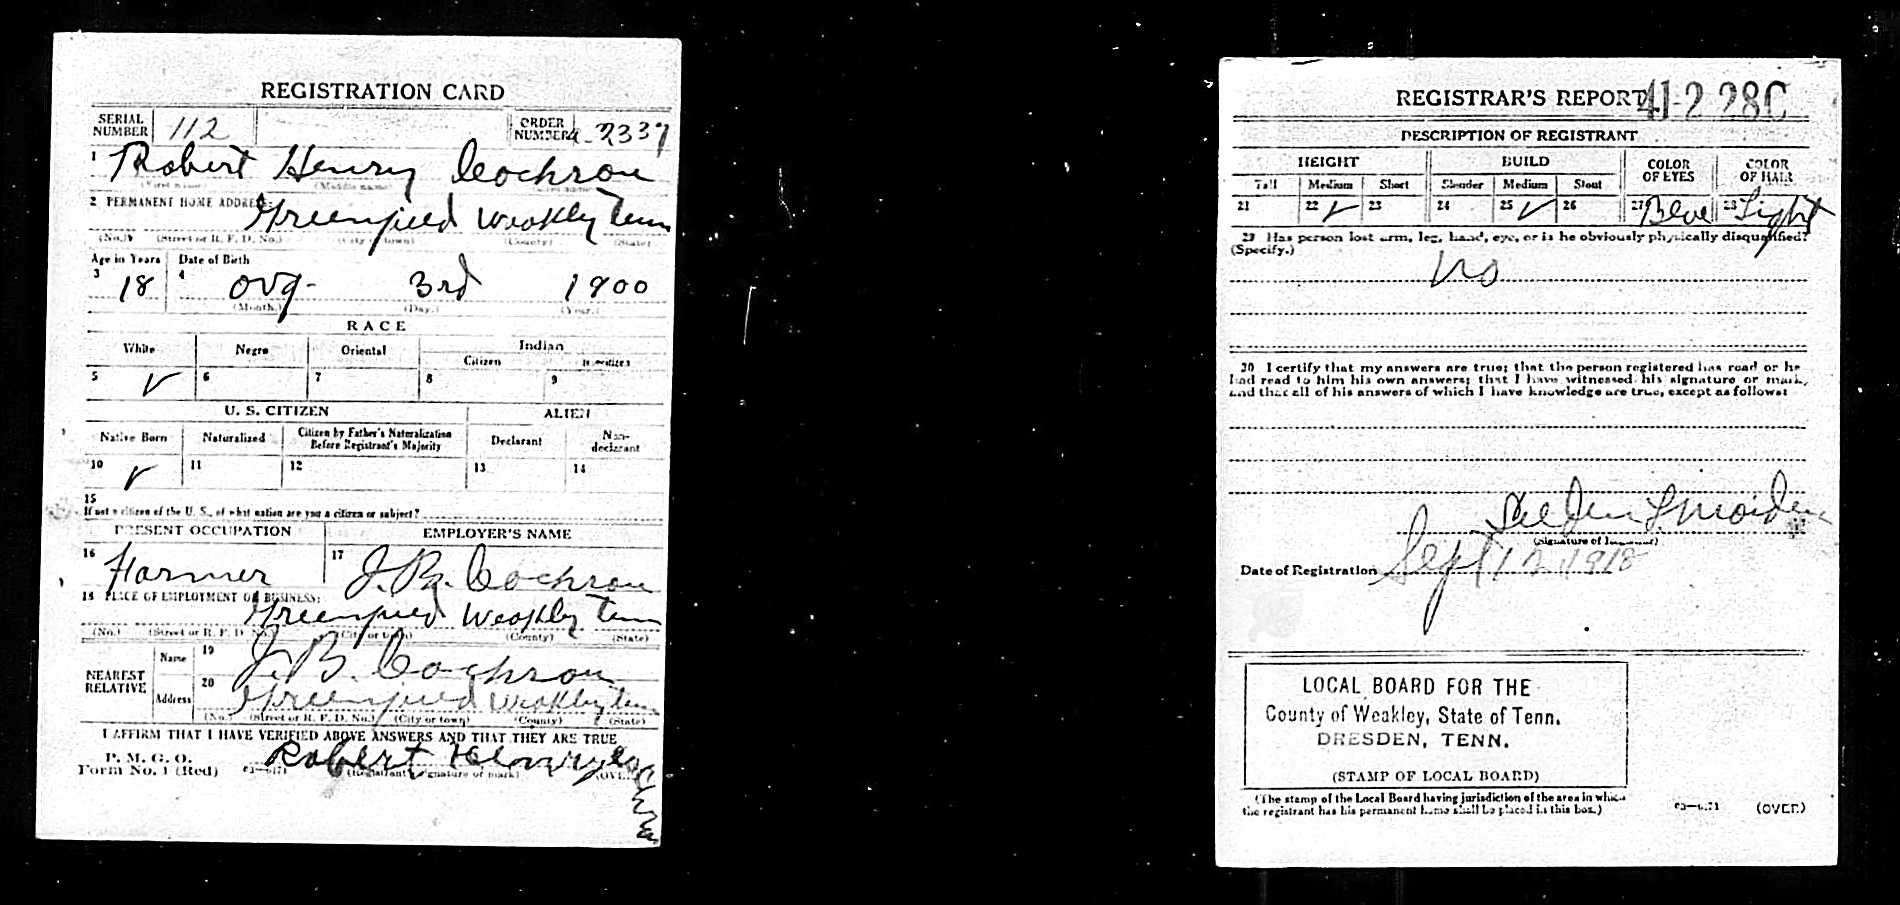 REGISTRATION CARD
SERIAL NUMBER 112 ORDER NUMBER 2337
1 Robert Henry Cochron
(First name) (Middle name)
2 PERMANENT HOME ADDRESS: Greenfield Weakley Tenn
(No.) (Street or R. F. D. No.) (City or town) (County) (State)
Age in Years Date of Birth
3 18 4 Aug- 3rd 1900
(Month.) (Day.) (Year.)
RACE
White Negro Oriental Indian
Citizen Noncitizen
5 ✓ 6 7 8 9
U. S. CITIZEN ALIEN
Native Born Naturalized Citizen by Father's Naturalization Before Registrant's Majority Declarant Non-declarant
10 ✓ 11 12 13 14
15
If not a citizen of the U. S., of what nation are you a citizen or subject?
PRESENT OCCUPATION EMPLOYER'S NAME
16 Farmer 17 J. B. Cochron
18 PLACE OF EMPLOYMENT OR BUSINESS: Greenfield Weakley Tenn
(No.) (Street or R. F. D. No.) (City or town) (County) (State)
NEAREST RELATIVE Name 19 J. B. Cochron
Address 20 Greenfield Weakley Tenn
(No.) (Street or R. F. D. No.) (City or town) (County) (State)
I AFFIRM THAT I HAVE VERIFIED ABOVE ANSWERS AND THAT THEY ARE TRUE
P. M. G. O.
Form No. 1 (Red) Robert Henry
(Registrant's signature or mark) (OVER)
REGISTRAR'S REPORT 41-2 28C
DESCRIPTION OF REGISTRANT
HEIGHT BUILD COLOR OF EYES COLOR OF HAIR
Tall Medium Short Slender Medium Stout
21 22 ✓ 23 24 25 ✓ 26 27 Blue 28 Light
29 Has person lost arm, leg, hand, eye, or is he obviously physically disqualified?
(Specify.)
no
30 I certify that my answers are true; that the person registered has read or he
had read to him his own answers; that I have witnessed his signature or mark,
and that all of his answers of which I have knowledge are true, except as follows:
(Signature of Registrar)
Date of Registration Sept 12 1918
LOCAL BOARD FOR THE
County of Weakley, State of Tenn.
DRESDEN, TENN.
(STAMP OF LOCAL BOARD)
(The stamp of the Local Board having jurisdiction of the area in which
the registrant has his permanent home shall be placed in this box.)
03—6171 (OVER)